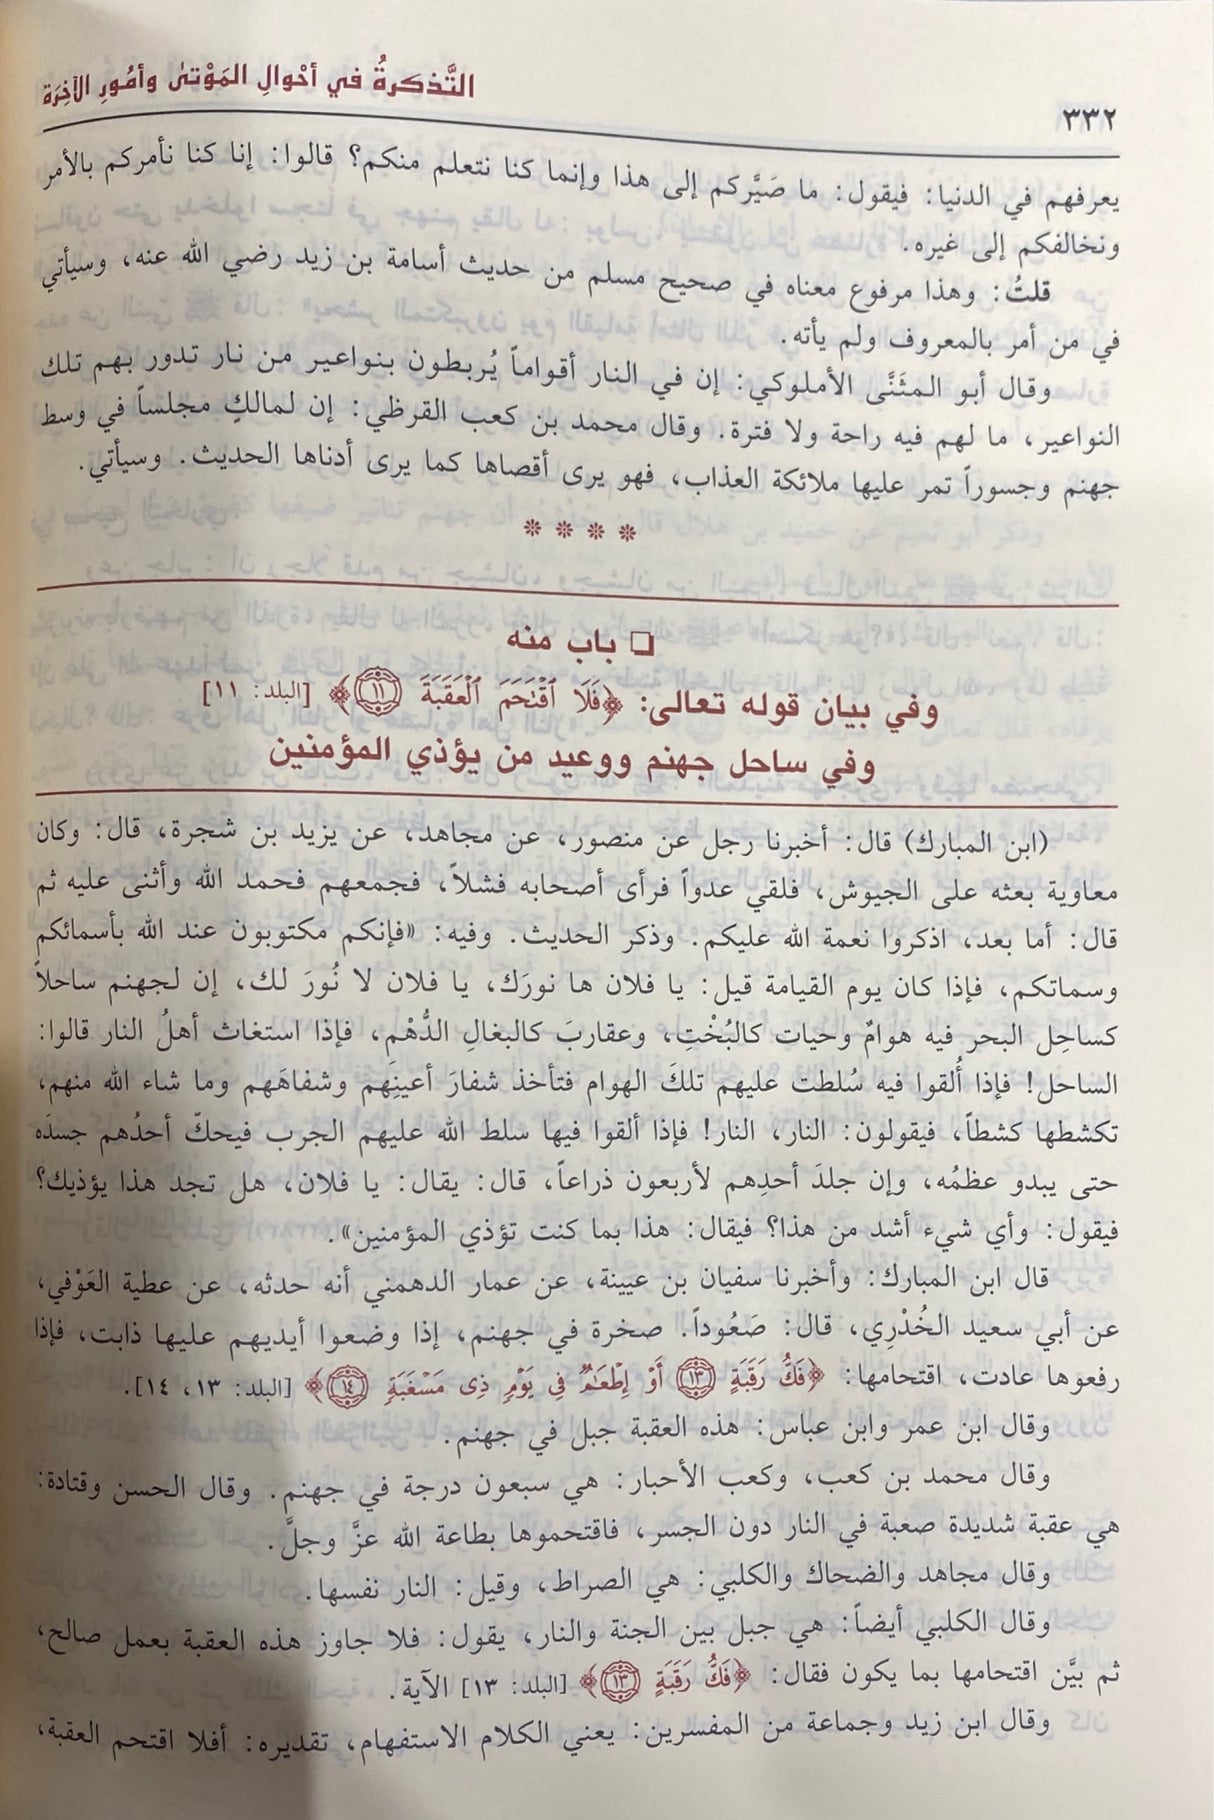 التَّذكرةُ في أحْوالِ المَوْتىٰ وأمُورِ الآخِرَة
٣٣٢
يعرفهم في الدنيا: فيقول: ما صَيَّركم إلى هذا وإنما كنا نتعلم منكم؟ قالوا: إنا كنا نأمركم بالأمر
ونخالفكم إلى غيره.
قلتُ: وهذا مرفوع معناه في صحيح مسلم من حديث أسامة بن زيد رضي الله عنه، وسيأتي
في من أمر بالمعروف ولم يأته.
وقال أبو المثَنَّى الأملوكي: إن في النار أقواماً يُربطون بنواعير من نار تدور بهم تلك
النواعير، ما لهم فيه راحة ولا فترة. وقال محمد بن كعب القرظي: إن لمالكٍ مجلساً في وسط
جهنم وجسوراً تمر عليها ملائكة العذاب، فهو يرى أقصاها كما يرى أدناها الحديث. وسيأتي.
❊ ❊ ❊ ❊
❏ باب منه
وفي بيان قوله تعالى: ﴿فَلَا ٱقْتَحَمَ ٱلْعَقَبَةَ ١١﴾ [البلد: ١١]
وفي ساحل جهنم ووعيد من يؤذي المؤمنين
(ابن المبارك) قال: أخبرنا رجل عن منصور، عن مجاهد، عن يزيد بن شجرة، قال: وكان
معاوية بعثه على الجيوش، فلقي عدواً فرأى أصحابه فشلاً، فجمعهم فحمد الله وأثنى عليه ثم
قال: أما بعد، اذكروا نعمة الله عليكم. وذكر الحديث. وفيه: «فإنكم مكتوبون عند الله بأسمائكم
وسماتكم، فإذا كان يوم القيامة قيل: يا فلان ها نورَك، يا فلان لا نُورَ لك، إن لجهنم ساحلاً
كساحِل البحر فيه هوامٌ وحيات كالبُخْتِ، وعقاربَ كالبغالِ الدُّهْمِ، فإذا استغاث أهلُ النار قالوا:
الساحل! فإذا أُلقوا فيه سُلطت عليهم تلكَ الهوام فتأخذ شفارَ أعينِهم وشفاهَهم وما شاء الله منهم،
تكشطها كشطاً، فيقولون: النار، النار! فإذا ألقوا فيها سلط الله عليهم الجرب فيحكّ أحدُهم جسدَه
حتى يبدو عظمُه، وإن جلدَ أحدِهم لأربعون ذراعاً، قال: يقال: يا فلان، هل تجد هذا يؤذيك؟
فيقول: وأي شيء أشد من هذا؟ فيقال: هذا بما كنت تؤذي المؤمنين».
قال ابن المبارك: وأخبرنا سفيان بن عيينة، عن عمار الدهمني أنه حدثه، عن عطية العَوْفي،
عن أبي سعيد الخُدْرِي، قال: صَعُوداً. صخرة في جهنم، إذا وضعوا أيديهم عليها ذابت، فإذا
رفعوها عادت، اقتحامها: ﴿فَكُّ رَقَبَةٍ ١٣ أَوْ إِطْعَٰمٌ فِى يَوْمٍ ذِى مَسْغَبَةٍ ١٤﴾ [البلد: ١٣، ١٤].
وقال ابن عمر وابن عباس: هذه العقبة جبل في جهنم.
وقال محمد بن كعب، وكعب الأحبار: هي سبعون درجة في جهنم. وقال الحسن وقتادة:
هي عقبة شديدة صعبة في النار دون الجسر، فاقتحموها بطاعة الله عزَّ وجلَّ.
وقال مجاهد والضحاك والكلبي: هي الصراط، وقيل: النار نفسها.
وقال الكلبي أيضاً: هي جبل بين الجنة والنار، يقول: فلا جاوز هذه العقبة بعمل صالح،
ثم بيَّن اقتحامها بما يكون فقال: ﴿فَكُّ رَقَبَةٍ ١٣﴾ [البلد: ١٣] الآية.
وقال ابن زيد وجماعة من المفسرين: يعني الكلام الاستفهام، تقديره: أفلا اقتحم العقبة،